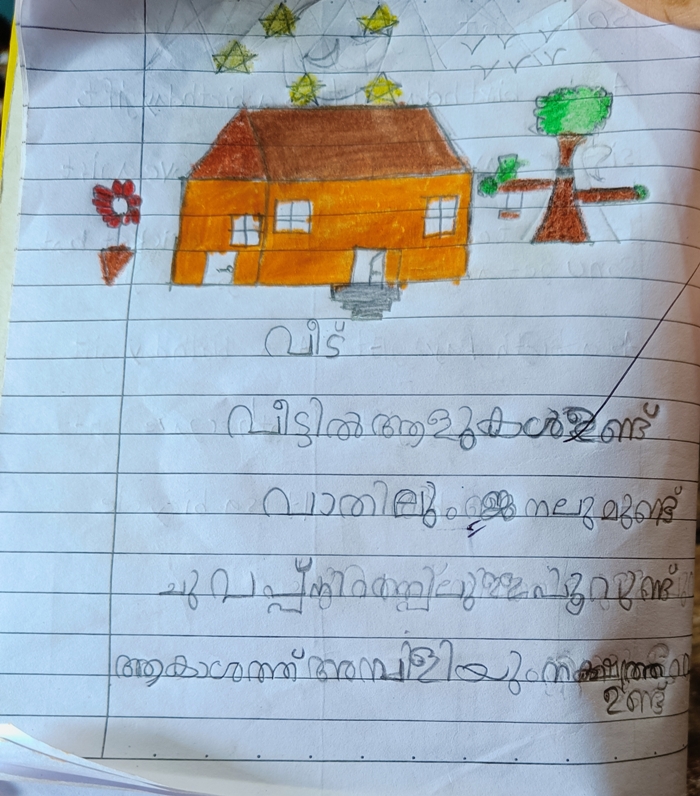 വീട്
വീട്ടിൽ ആളുകൾ ഉണ്ട്
വാതിലും ജനലുമുണ്ട്
ചുവപ്പ് നിറത്തിലുള്ള പൂവുണ്ട്
ആകാശത്ത് അമ്പിളിയും നക്ഷത്രവ
ഉണ്ട്